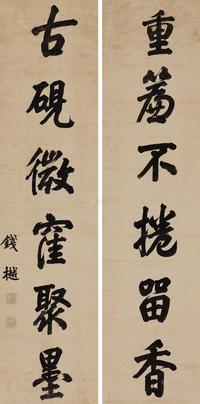 重簾不捲留香
古硯微窪聚墨
錢樾